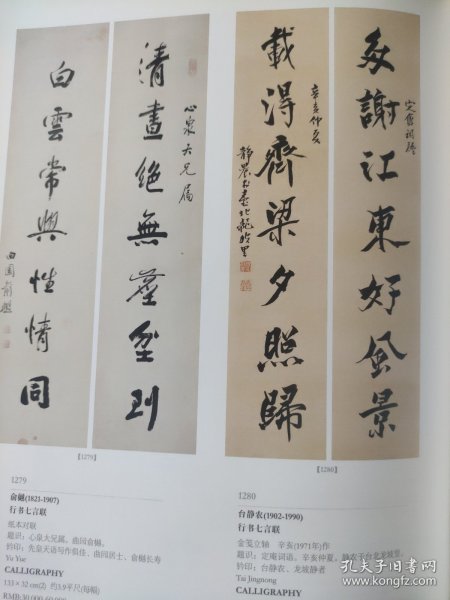 多謝江東好風景
定盦詞語
載得齊梁夕照歸
辛亥仲夏
清晝絕無塵坌到
心泉大兄屬
白雲常與性情同
曲園俞樾
【1279】
【1280】
1279
俞樾(1821-1907)
行书七言联
纸本对联
题识：心泉大兄属，曲园俞樾。
钤印：先皇天语写作俱佳、曲园居士、俞樾长寿
Yu Yue
CALLIGRAPHY
133×32 cm(2) 约3.9平尺(每幅)
RMB: 30,000-60,000
1280
台静农(1902-1990)
行书七言联
金笺立轴 辛亥(1971年)作
题识：定庵词语。辛亥仲夏，静农于台北龙坡里
钤印：台静农、龙坡静者
Tai Jingnong
CALLIGRAPHY
孔夫子旧书网